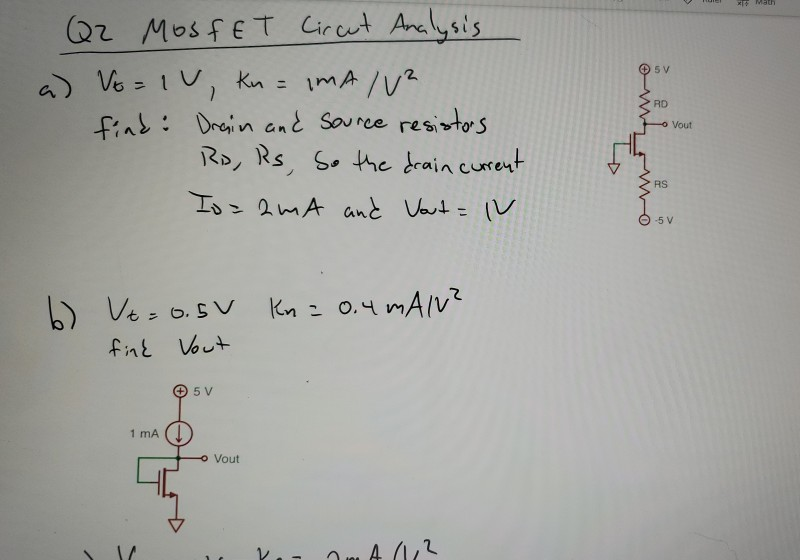 Math
Q2 MOSFET Circut Analysis
a) Vt = 1 V, Kn = 1mA/V²
find: Drain and Source resistors
RD, RS, So the drain current
ID = 2mA and Vout = 1V
5 V
RD
Vout
RS
-5 V
b) Vt = 0.5V Kn = 0.4 mA/V²
find Vout
5 V
1 mA
Vout